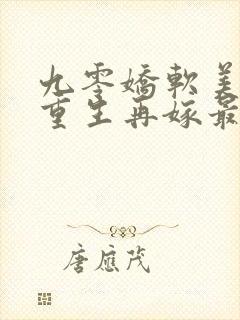 九零嬌軟美
重生再嫁最
唐應茂